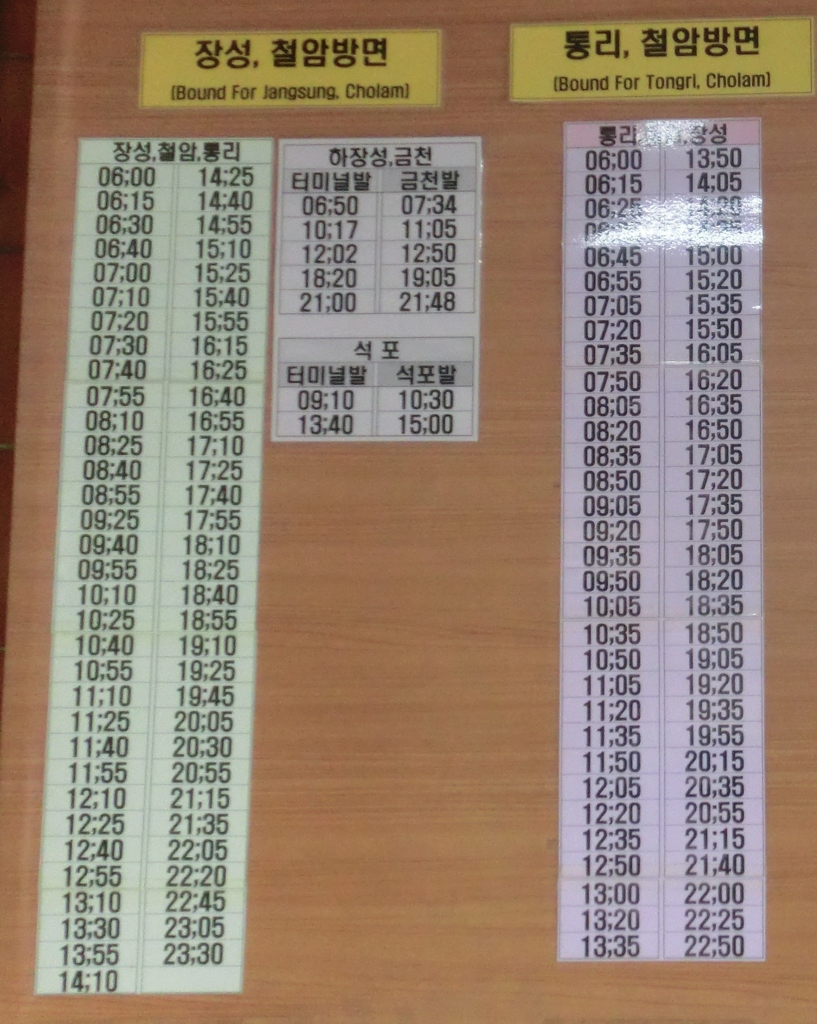 장성, 철암방면
(Bound For Jangsung, Cholam)
장성,철암,통리
06;00 14;25
06;15 14;40
06;30 14;55
06;40 15;10
07;00 15;25
07;10 15;40
07;20 15;55
07;30 16;15
07;40 16;25
07;55 16;40
08;10 16;55
08;25 17;10
08;40 17;25
08;55 17;40
09;25 17;55
09;40 18;10
09;55 18;25
10;10 18;40
10;25 18;55
10;40 19;10
10;55 19;25
11;10 19;45
11;25 20;05
11;40 20;30
11;55 20;55
12;10 21;15
12;25 21;35
12;40 22;05
12;55 22;20
13;10 22;45
13;30 23;05
13;55 23;30
14;10
하장성,금천
터미널발 금천발
06;50 07;34
10;17 11;05
12;02 12;50
18;20 19;05
21;00 21;48
석 포
터미널발 석포발
09;10 10;30
13;40 15;00
통리, 철암방면
(Bound For Tongri, Cholam)
통리 장성
06;00 13;50
06;15 14;05
06;25 14;20
06;45 15;00
06;55 15;20
07;05 15;35
07;20 15;50
07;35 16;05
07;50 16;20
08;05 16;35
08;20 16;50
08;35 17;05
08;50 17;20
09;05 17;35
09;20 17;50
09;35 18;05
09;50 18;20
10;05 18;35
10;35 18;50
10;50 19;05
11;05 19;20
11;20 19;35
11;35 19;55
11;50 20;15
12;05 20;35
12;20 20;55
12;35 21;15
12;50 21;40
13;00 22;00
13;20 22;25
13;35 22;50